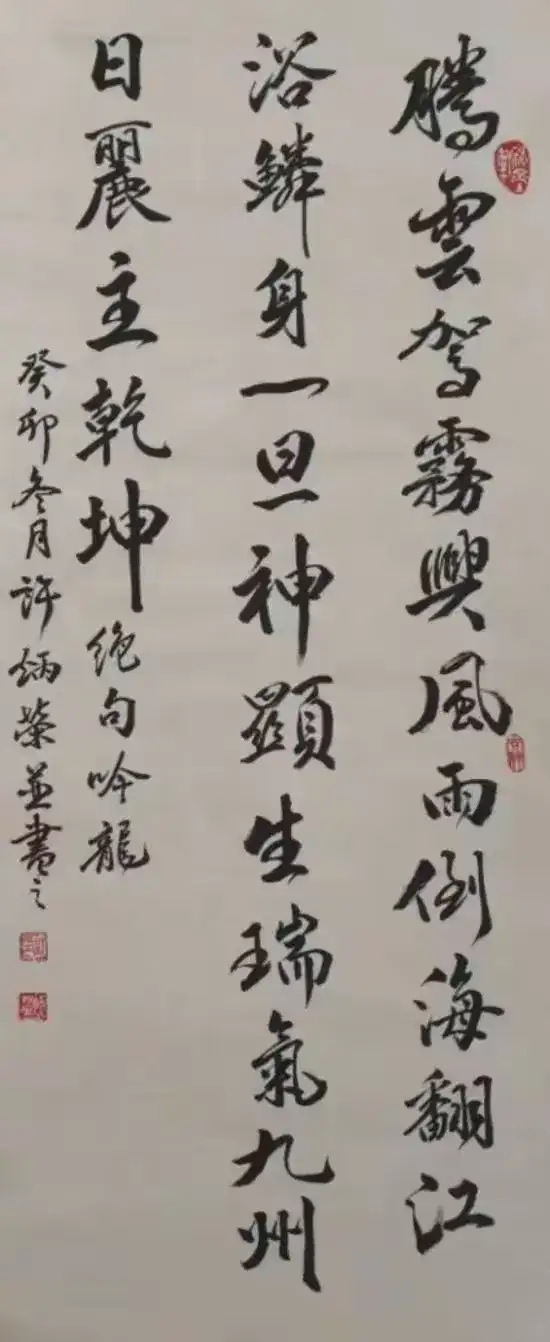 騰雲駕霧興風雨倒海翻江
浴鱗身一旦神顯生瑞氣九州
日麗主乾坤
絶句吟龍
癸卯冬月許炳榮並書之